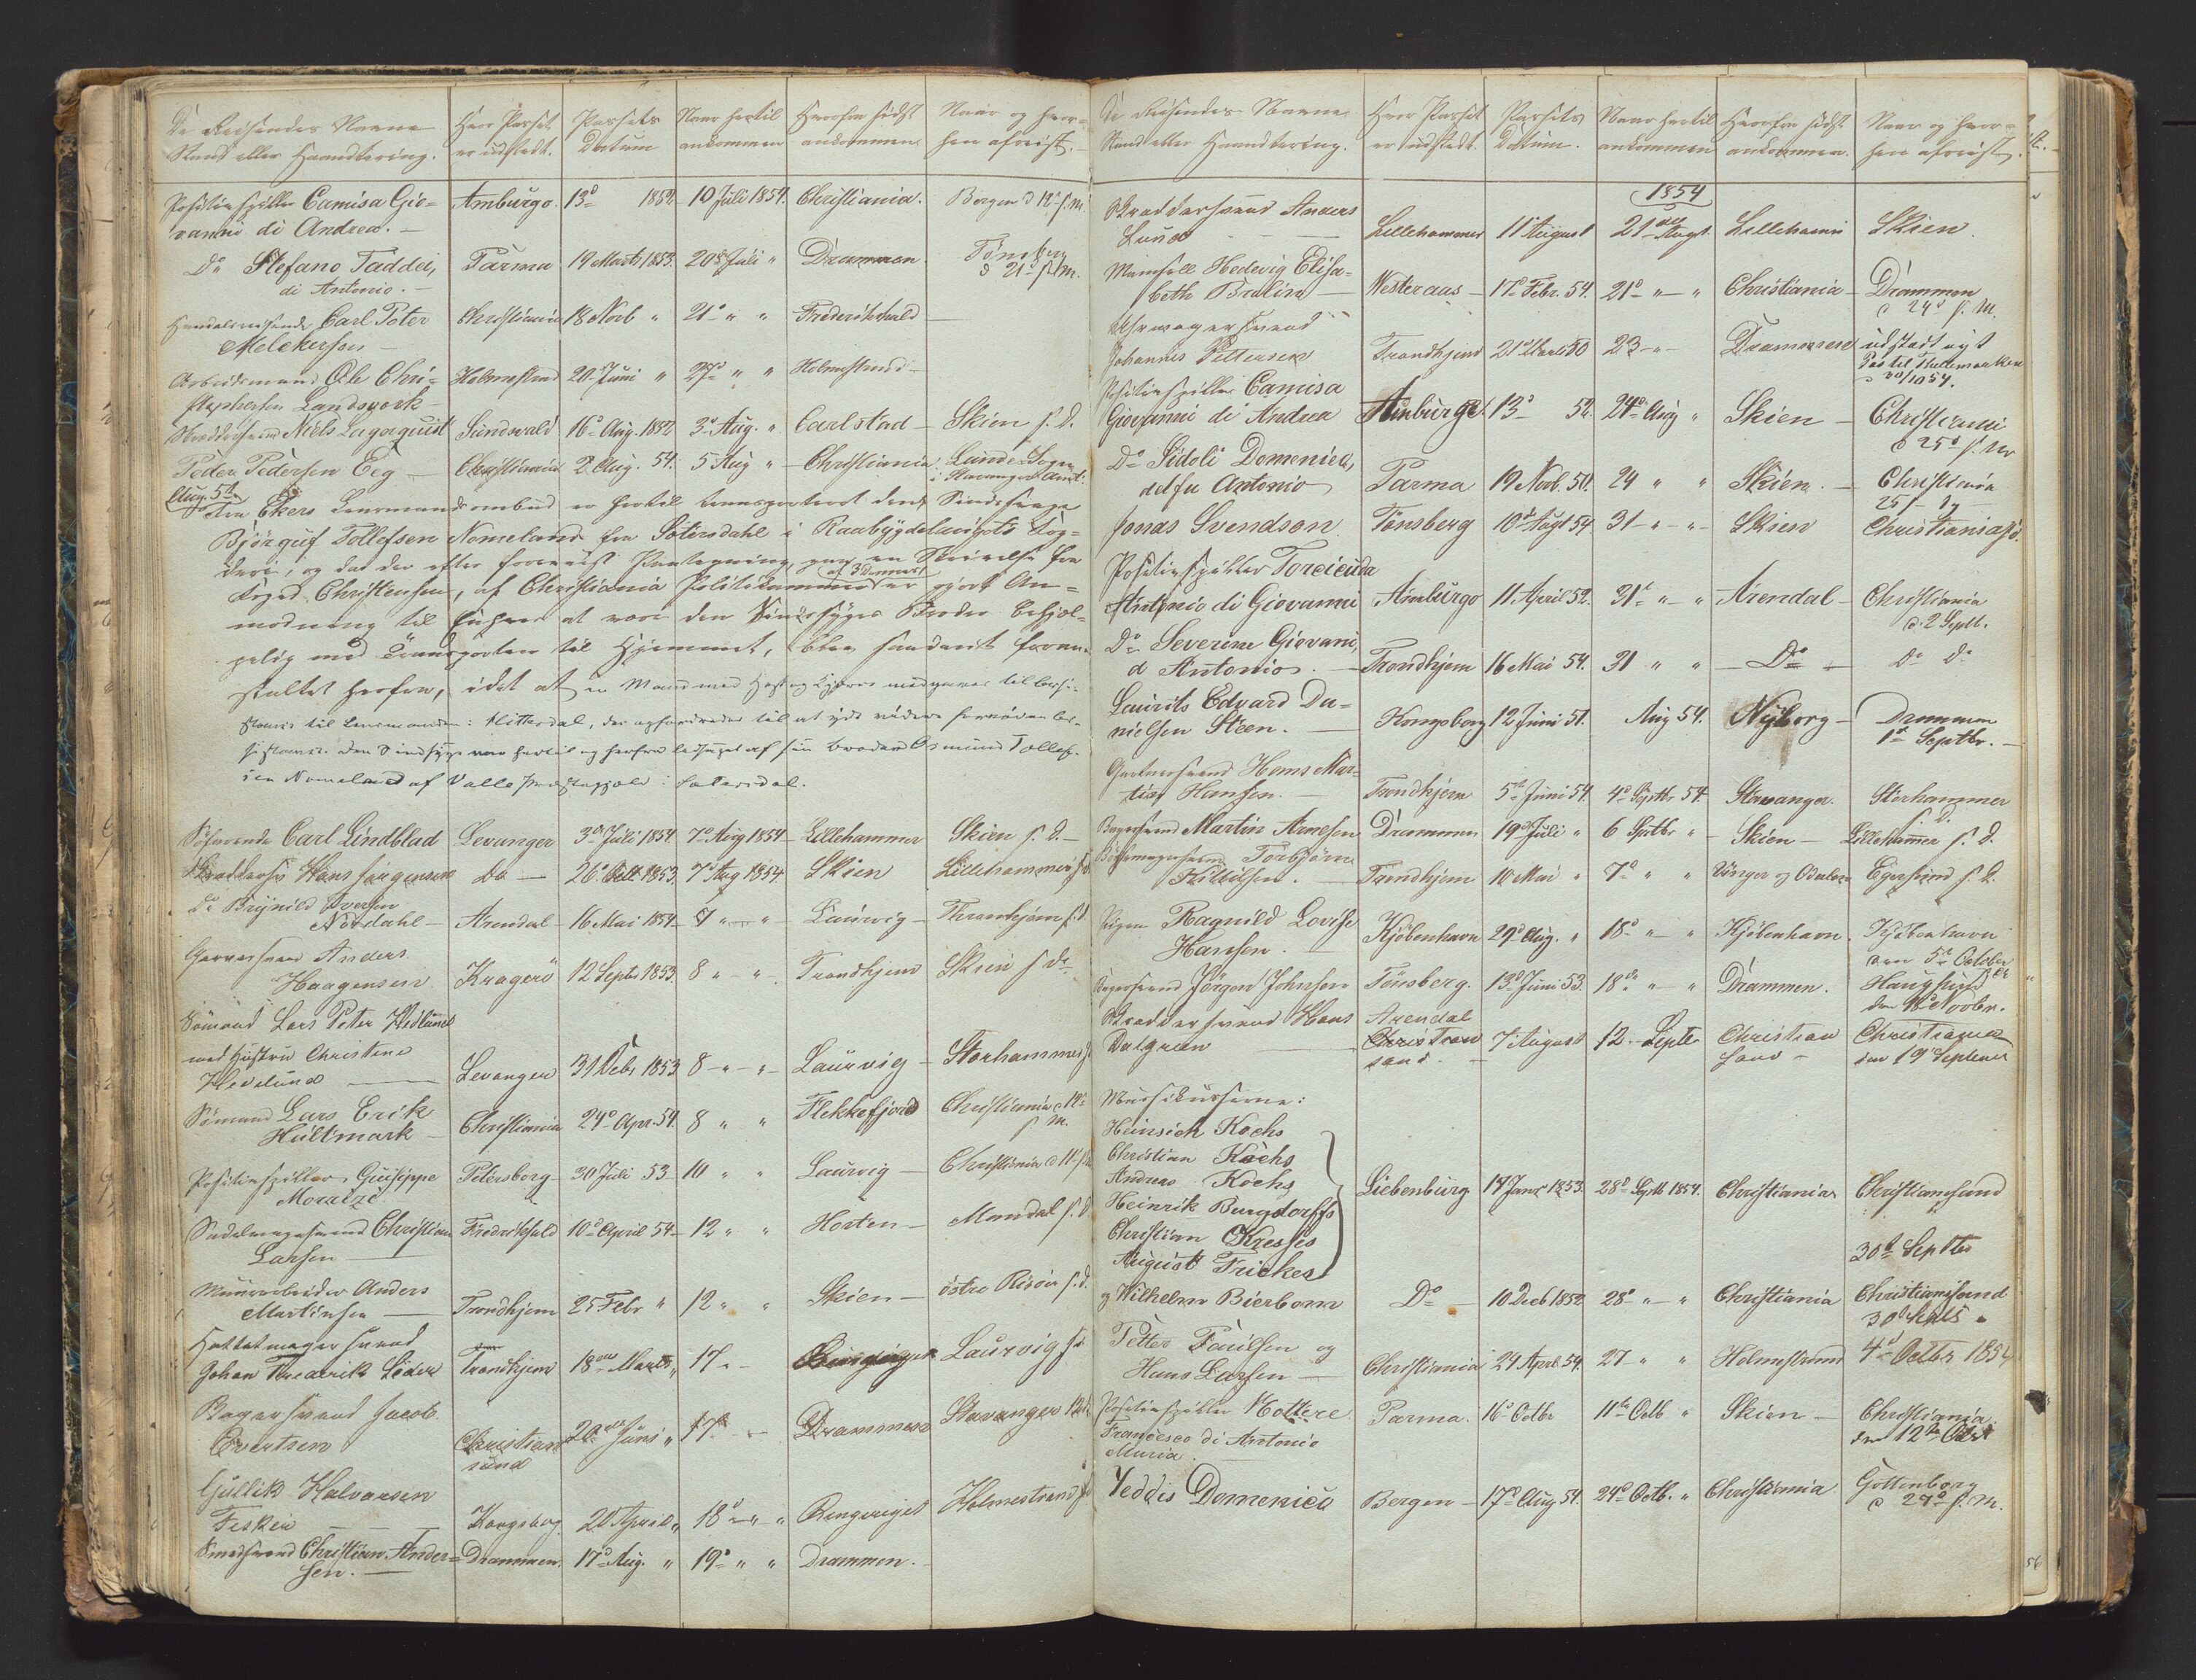 De Reisendes Navne Stand eller Haandtering. | Hvor Passet er udstedt. | Passets Datum | Naar hertil ankommen | Hvorfra sidst ankommen | Naar og hvorhen afreist.
Positivspiller Camisa Gio-
vanni di Andrea. — | Amburgo. | 13d 1852. | 10 Juli 1854. | Christiania. | Bergen d 12 s. M.
Do Stefano Taddei,
di Antonio. — | Parma | 19 Marts 1853. | 20d Juli " | Drammen. | Tønsberg d 21 s. M.
Handelsreisende Carl Peter
Melckersen — | Christiania | 18 Novb " | 21d " " | Frederikshald —
Arbeidsmand Ole Chri-
stophersen Landsverk — | Holmestrand | 20 Juni " | 27d " " | Holmestrand —
Skræddersvend Niels Lagerquist | Sundsvald | 16d Aug. 1852 | 3d Aug. " | Carlstad — | Skien s. D.
Peder Pedersen Eeg — | Christiania | 2 Aug. 54. | 5 Aug " | Christiania. | Lunde Sogn i Stavanger Amt.
Aug. 5te
Fra Ekers Lensmandsombud er hertil transporteret den Sindssvage
Bjørguf Tollefsen Nomeland fra Sætersdahl i Raabygdelaugets Fog-
deri, og da der efter foreviist Paategning paa en Skrivelse fra
Foged Christensen, af Christiania Politikammer af 3 Dennes er gjort An-
modning til Enhver at være den Sindssyges Broder behjel-
pelig med Transporten til Hjemmet, blev saadant foran-
staltet herfra, idet at en Mand med Hest og Kjærre medgaves til
til Lensmanden i Hitterdal, der opfordredes til at yde videre fornøden As-
sistance. Den Sindssyge var hertil og herfra ledsaget af sin Broder Osmund Tollef-
sen Nomeland af Valle Præstegjeld i Sætersdal.
Søfarende Carl Lindblad | Levanger | 3die Juli 1854. | 7d Aug 1854 | Lillehammer | Skien s. D. —
Skræddersv Hans Jørgensen | Do — | 26d Octb 1853. | 7d Aug 1854 | Skien | Lillehammer s. D.
Do Brynild Iversen
Nordahl — | Arendal — | 16 Mai 1854 | 8 " " | Laurvig — | Thronhjem s. d.
Garversvend Anders
Haagensen | Kragerö | 12 Septr 1853. | 8 " " | Trondhjem | Skien s d.
Sømand Lars Peter Hedlund
med Hustru Christine
Hedelund — | Levanger | 31 Debr 1853 | 8 " " | Laurvig — | Storhammer s
Sømand Lars Erik
Hultmark — | Christiania | 24d Apr. 54. | 8 " " | Flekkefjord | Christiania d 12 s M.
Positivspiller Guiseppe
Moraizi | Petersborg | 30 Juli 53 | 10 " " | Laurvig — | Christiania d 11 s
Sadelmagersvend Christian
Larsen — | Fredrikshald | 10d April 54 | 12 " " | Horten — | Mandal s. D
Muurarbeider Anders
Martinsen — | Trondhjem | 25 Febr " | 12 " " | Skien — | østre Risöer s. d.
Hattemagersvend
Johan Fredrik Söder | Trondhjem | 18de Marts " | 17 " — | | Laurvig s d
Bagersvend Jacob
Evertsen | Christiansund | 20de Juni " | 17 " — | Drammen | Stavanger
Gullik Halvorsen
Fesker — | Kongsberg. | 20 April " | 18d " " | Ringeriget | Holmestrand s
Smedsvend Christian Ander-
sen. — | Drammen. | 17d Aug. " | 19d " " | Drammen.
De Reisendes Navne Stand eller Haandtering. | Hvor Passet er udstedt. | Passets Datum. | Naar hertil ankommen | Hvorfra sidst ankommen. | Naar og hvorhen afreist.
1854
Skræddersvend Anders
Lund — | Lillehammer | 11 August | 21de Augt. | Lillehamr | Skien.
Mamsell Hedevig Elisa-
beth Bralin — | Westeraas — | 17d Febr. 54. | 21d " " | Christiania — | Drammen d 24d s. M.
Uhrmagersvend
Johannes Pettersen | Trondhjem | 21d Marts 50 | 23 " — | Drammen | udstædt nyt Pas til Thellemarken d 20/10 54.
Positivspiller Camisa
Giovanni di Andrea | Amburgo | 13d 52. | 24d Aug " | Skien — | Christiania d 25d s. M
Do Sidoli Domenico,
del fu Antonio | Parma | 19 Novb. 50. | 24 " " | Skien. — | Christiania 25 s. M
Jonas Svendsen | Tønsberg | 10d Augt 54 | 31 " " | Skien | Christiania s d.
Positivspiller
Antonio di Giovanni | Amburgo | 11 April 52. | 31d " " | Arendal — | Christiania d. 2 Septb.
Do Severini Giovani,
d Antonio. — | Trondhjem | 16 Mai 54. | 31 " " | Do — | Do Do
Laurits Edvard Da-
nielsen Steen. — | Kongsberg | 12 Juni 51. | Aug 54. | Nyborg — | Drammen 1d Septbr. —
Gartnersvend Hans Mar-
tin Hansen. — | Trondhjem | 5te Juni 54. | 4d Septbr 54. | Stavanger. | Storhammer s. D.
Bagersvend Martin Arnesen | Drammen | 19d Juli " | 6 Septbr " | Skien — | Lillehammer s. D.
Bøssemagersvend Torbjörn
Kittilsen. — | Trondhjem | 10 Mai " | 7d " " | Vinger og Odalen | Egersund s. D.
Pigen Ragnild Lovise
Hansen. — | Kjöbenhavn | 29d Aug. " | 18d " " | Kjöbenhavn. | Kjöbenhavn den 5te October
Bagersvend Jörgen Johnsen | Tönsberg. | 13d Juni 53. | 18de " " | Drammen. | Haugsund den Novbr.
Skræddersvend Hans
Dalgren — | Arendal Christiansand — | 7 August | 12 Septr | Christiansand — | Christiania den 19 September
Mussikusserne:
Heinrich Kochs
Christian Kochs
Andreas Kochs
Heinrik Burgdorffs
Christian Kresses
August Frickes | Liebenburg | 14 Janr 1853. | 28d Septb 1854. | Christiania | Christiansund 30d Septbr
og Wilhelm Bierbom | Do — | 10 Decb 1852 | 28d " " | Christiania | Christiansund 30d Septb "
Petter Poulsen og
Hans Larsen — | Christiania | 24 April 54. | 27 " " | Holmestrand | 4d Octbr 1854
Positivspiller Mottere
Francesco di Antonio
Maria. — | Parma. | 16d Octbr | 11te Octb " | Skien — | Christiania. den 12te Octbr
Yeddis Domenico | Bergen — | 17d Aug 54. | 24d Octb. " | Christiania. | Gottenborg d 27d s. M.
56